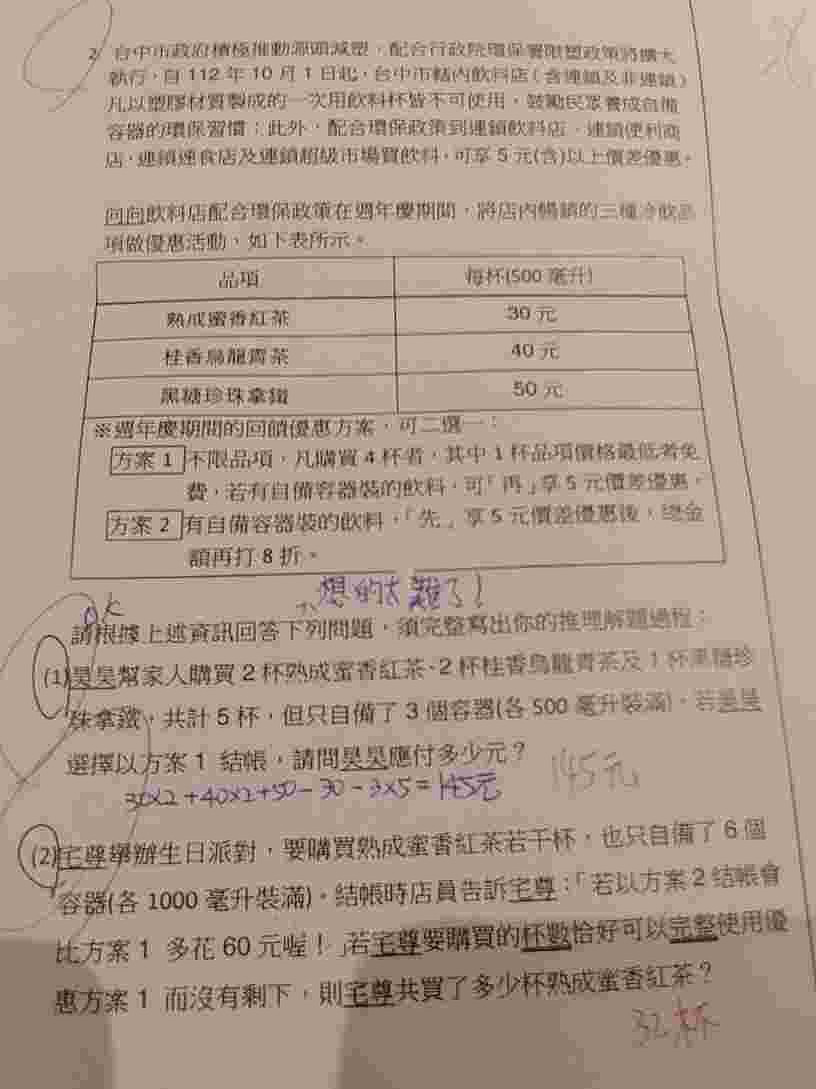 2. 台中市政府積極推動源頭減塑，配合行政院環保署限塑政策將擴大
執行，自 112 年 10 月 1 日起，台中市轄內飲料店（含連鎖及非連鎖）
凡以塑膠材質製成的一次用飲料杯皆不可使用，鼓勵民眾養成自備
容器的環保習慣；此外，配合環保政策到連鎖飲料店、連鎖便利商
店、連鎖速食店及連鎖超級市場買飲料，可享 5 元(含)以上價差優惠。
回向飲料店配合環保政策在週年慶期間，將店內暢銷的三種冷飲品
項做優惠活動，如下表所示。
品項 每杯(500 毫升)
熟成蜜香紅茶 30 元
桂香烏龍青茶 40 元
黑糖珍珠拿鐵 50 元
※週年慶期間的回饋優惠方案，可二選一：
方案 1 不限品項，凡購買 4 杯者，其中 1 杯品項價格最低者免
費，若有自備容器裝的飲料，可「再」享 5 元價差優惠。
方案 2 有自備容器裝的飲料，「先」享 5 元價差優惠後，總金
額再打 8 折。
想的太難了!
OK
請根據上述資訊回答下列問題，須完整寫出你的推理解題過程：
(1)昊昊幫家人購買 2 杯熟成蜜香紅茶、2 杯桂香烏龍青茶及 1 杯黑糖珍
珠拿鐵，共計 5 杯，但只自備了 3 個容器(各 500 毫升裝滿)。若昊昊
選擇以方案 1 結帳，請問昊昊應付多少元？
145元
30×2+40×2+50-30-3×5=145元
(2)宅尊舉辦生日派對，要購買熟成蜜香紅茶若干杯，也只自備了 6 個
容器(各 1000 毫升裝滿)。結帳時店員告訴宅尊：「若以方案 2 結帳會
比方案 1 多花 60 元喔！」若宅尊要購買的杯數恰好可以完整使用優
惠方案 1 而沒有剩下，則宅尊共買了多少杯熟成蜜香紅茶？
32杯